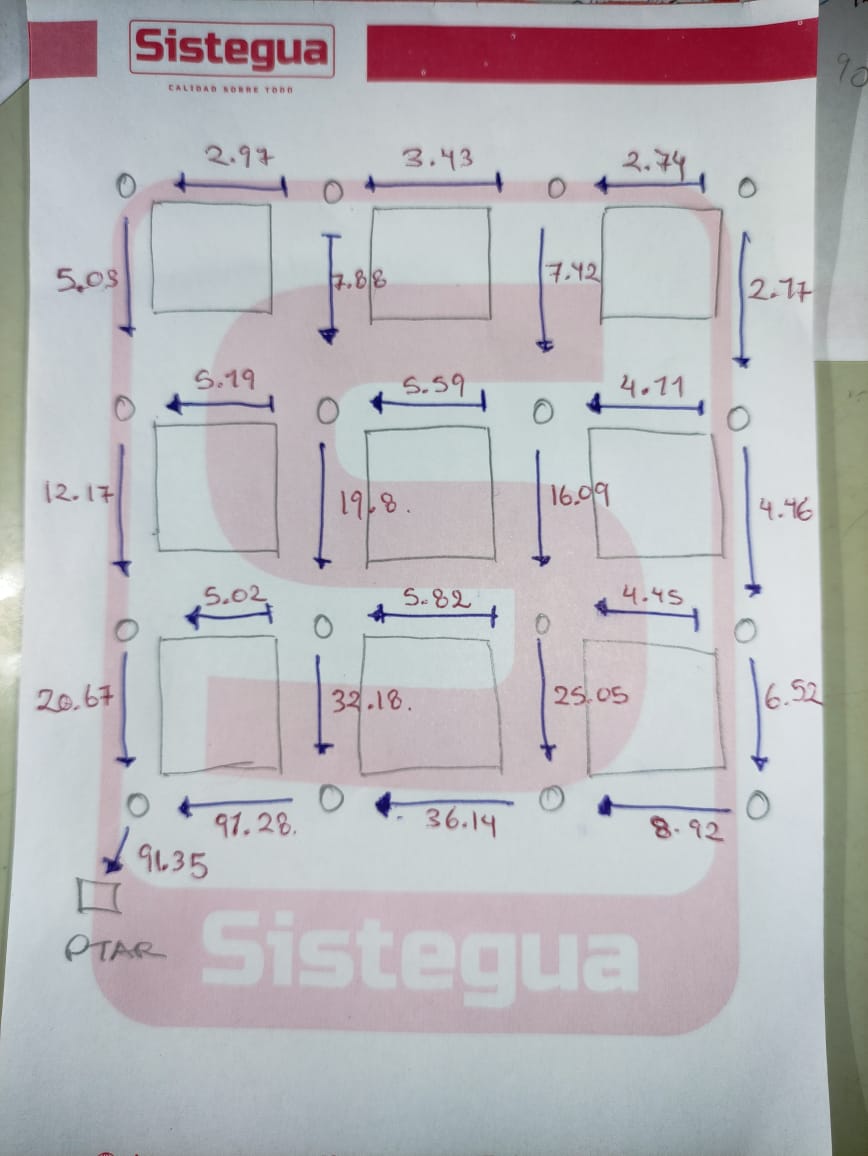 Sistegua
CALIDAD SOBRE TODO
2.97 3.43 2.74
5.03 7.88 7.42 2.77
5.19 5.59 4.11
12.17 19.8. 16.09 4.46
5.02 5.82 4.45
20.67 32.18. 25.05 6.52
97.28. 36.14 8.92
91.35
PTAR
Sistegua